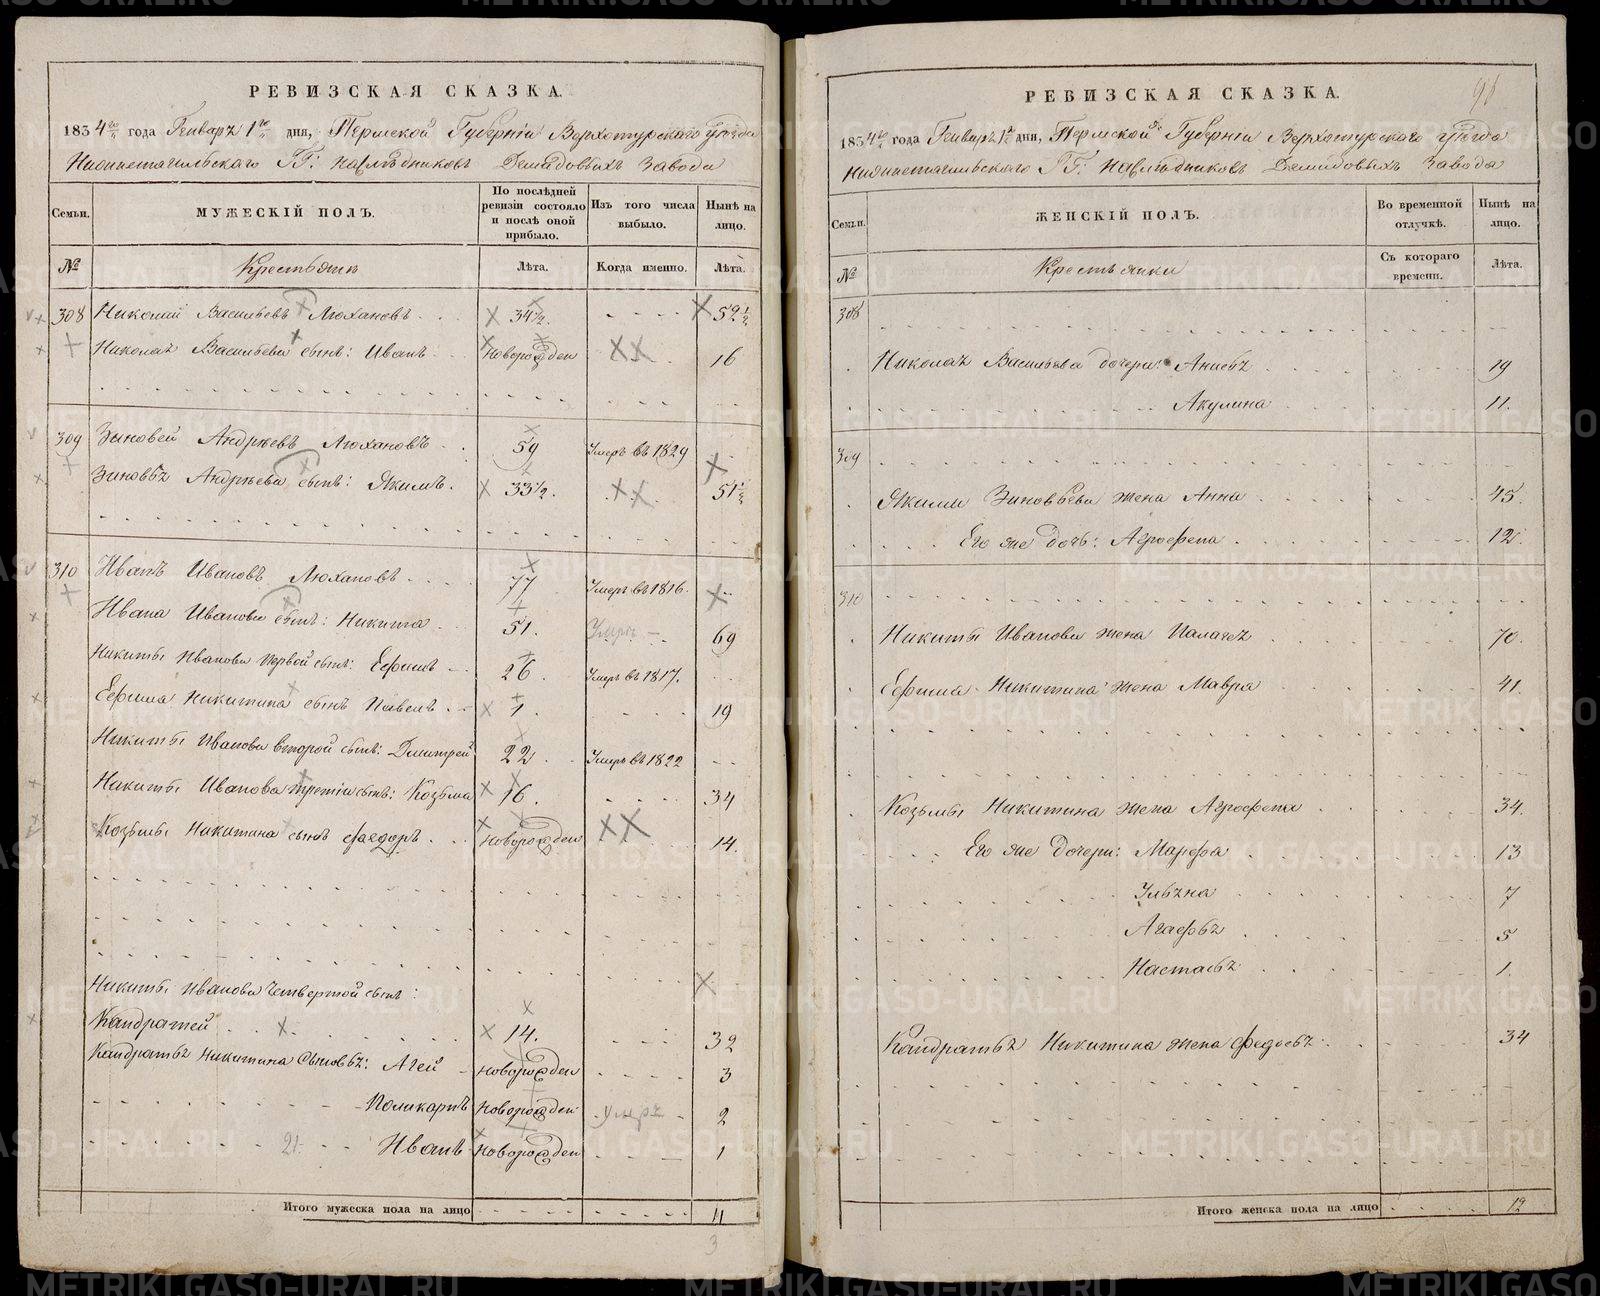 РЕВИЗСКАЯ СКАЗКА.
1834го года Генваря 1го дня, Пермской Губернiи Верхотурскаго уѣзда
Нижнетагильскаго ГГ: наслѣдниковъ Демидовыхъ Завода
Семьи. МУЖЕСКIЙ ПОЛЪ. По послѣдней ревизiи состояло и послѣ оной прибыло. Изъ того числа выбыло. Нынѣ на лицо.
№ Крестьяне Лѣта. Когда именно. Лѣта.
308 Николай Васильевъ Люхановъ 34½. 52½
Николая Васильева сынъ: Иванъ Новорожден 16
309 Зиновей Андреевъ Люхановъ 59 Умеръ въ 1829
Зиновья Андреева сынъ: Якимъ. 33½. 51½
310 Иванъ Ивановъ Люхановъ 77 Умеръ въ 1816.
Ивана Иванова сынъ: Никита 51. Умеръ 69
Никиты Иванова первой сынъ: Ефимъ 26. Умеръ въ 1817.
Ефима Никитина сынъ Павелъ 1. 19
Никиты Иванова второй сынъ: Дмитрей 22. Умеръ въ 1822
Никиты Иванова третiй сынъ: Козьма 16. 34
Козьмы Никитина сынъ Фаедоръ. Новорожден 14.
Никиты Иванова Четвертой сынъ:
Кандратей 14. 32
Кандратья Никитина Сыновья: Агей новорожден 3
Поликарпъ новорожден умеръ 2
21 Иванъ новорожден 1
Итого мужеска пола на лицо 11
3
98
РЕВИЗСКАЯ СКАЗКА.
1834го года Генваря 1го дня, Пермской Губернiи Верхотурскаго уѣзда
Нижнетагильскаго ГГ: Наслѣдниковъ Демидовыхъ Завода
Семьи. ЖЕНСКIЙ ПОЛЪ. Во временной отлучкѣ. Нынѣ на лицо.
№ Крестьянки Съ котораго времени. Лѣта.
308
Николая Васильева дочери: Анисья 19
Акулина 11.
309
Якима Зиновьева жена Анна 45.
Его же дочь: Агрофена 12.
310
Никиты Иванова жена Палагея 70.
Ефима Никитина жена Мавра 41.
Козьмы Никитина жена Агрофена 34.
Его же Дочери: Марфа 13
Ульяна 7
Агафья 5
Настасья 1.
Кандратья Никитина жена Федосья 34
Итого женска пола на лицо 12
METRIKI.GASO-URAL.RU